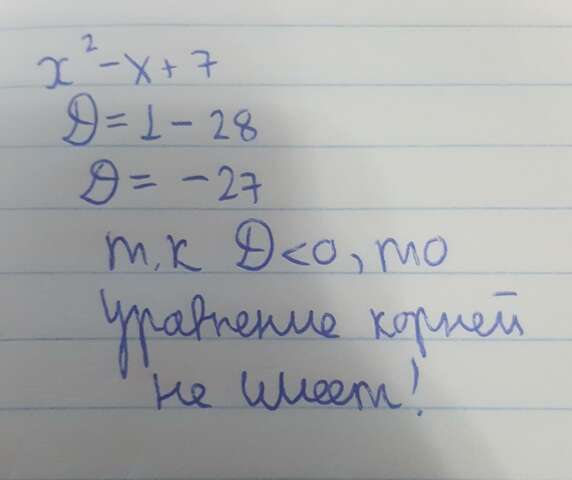 x² - x + 7
D = 1 - 28
D = - 27
т.к D < 0, то
уравнение корней
не имеет!